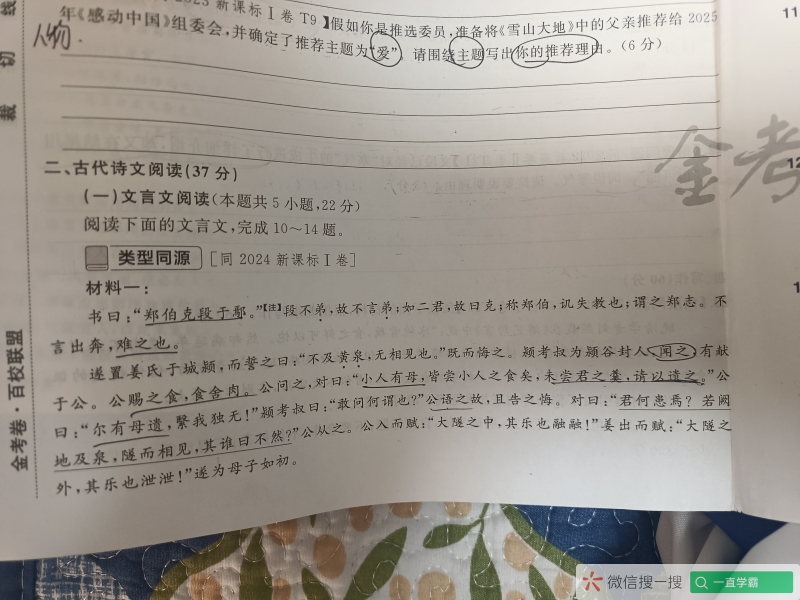 2023 新课标Ⅰ卷 T9】假如你是推选委员,准备将《雪山大地》中的父亲推荐给 2025
年《感动中国》组委会,并确定了推荐主题为“爱”。请围绕主题写出你的推荐理由。(6 分)
人物
二、古代诗文阅读(37 分)
(一)文言文阅读(本题共 5 小题,22 分)
阅读下面的文言文,完成 10~14 题。
类型同源 [同 2024 新课标Ⅰ卷]
材料一:
书曰:“郑伯克段于鄢。”【注】段不弟,故不言弟;如二君,故曰克;称郑伯,讥失教也;谓之郑志。不
言出奔,难之也。
遂置姜氏于城颍,而誓之曰:“不及黄泉,无相见也。”既而悔之。颍考叔为颍谷封人,闻之,有献
于公。公赐之食,食舍肉。公问之,对曰:“小人有母,皆尝小人之食矣,未尝君之羹,请以遗之。”公
曰:“尔有母遗,繄我独无!”颍考叔曰:“敢问何谓也?”公语之故,且告之悔。对曰:“君何患焉?若阙
地及泉,隧而相见,其谁曰不然?”公从之。公入而赋:“大隧之中,其乐也融融!”姜出而赋:“大隧之
外,其乐也泄泄!”遂为母子如初。
线
切
裁
金考卷·百校联盟
金考
11
12
1
微信搜一搜
一直学霸